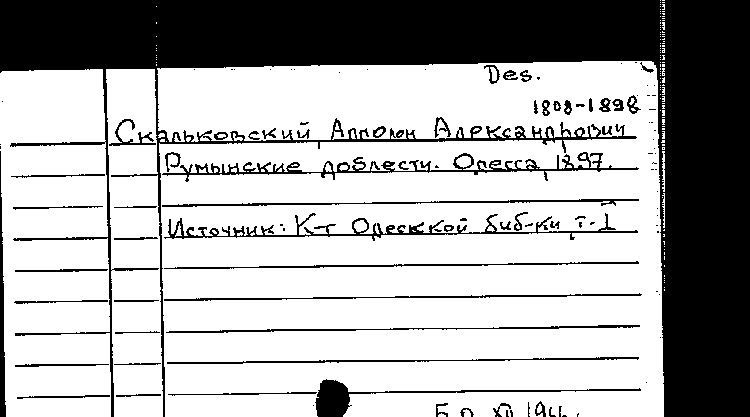 Des.
1808-1898
Скальковский, Апполон Александрович
Румынские доблести. Одесса, 1897.
Источник: К-т Одесской биб-ки, т-I
XII 1944.